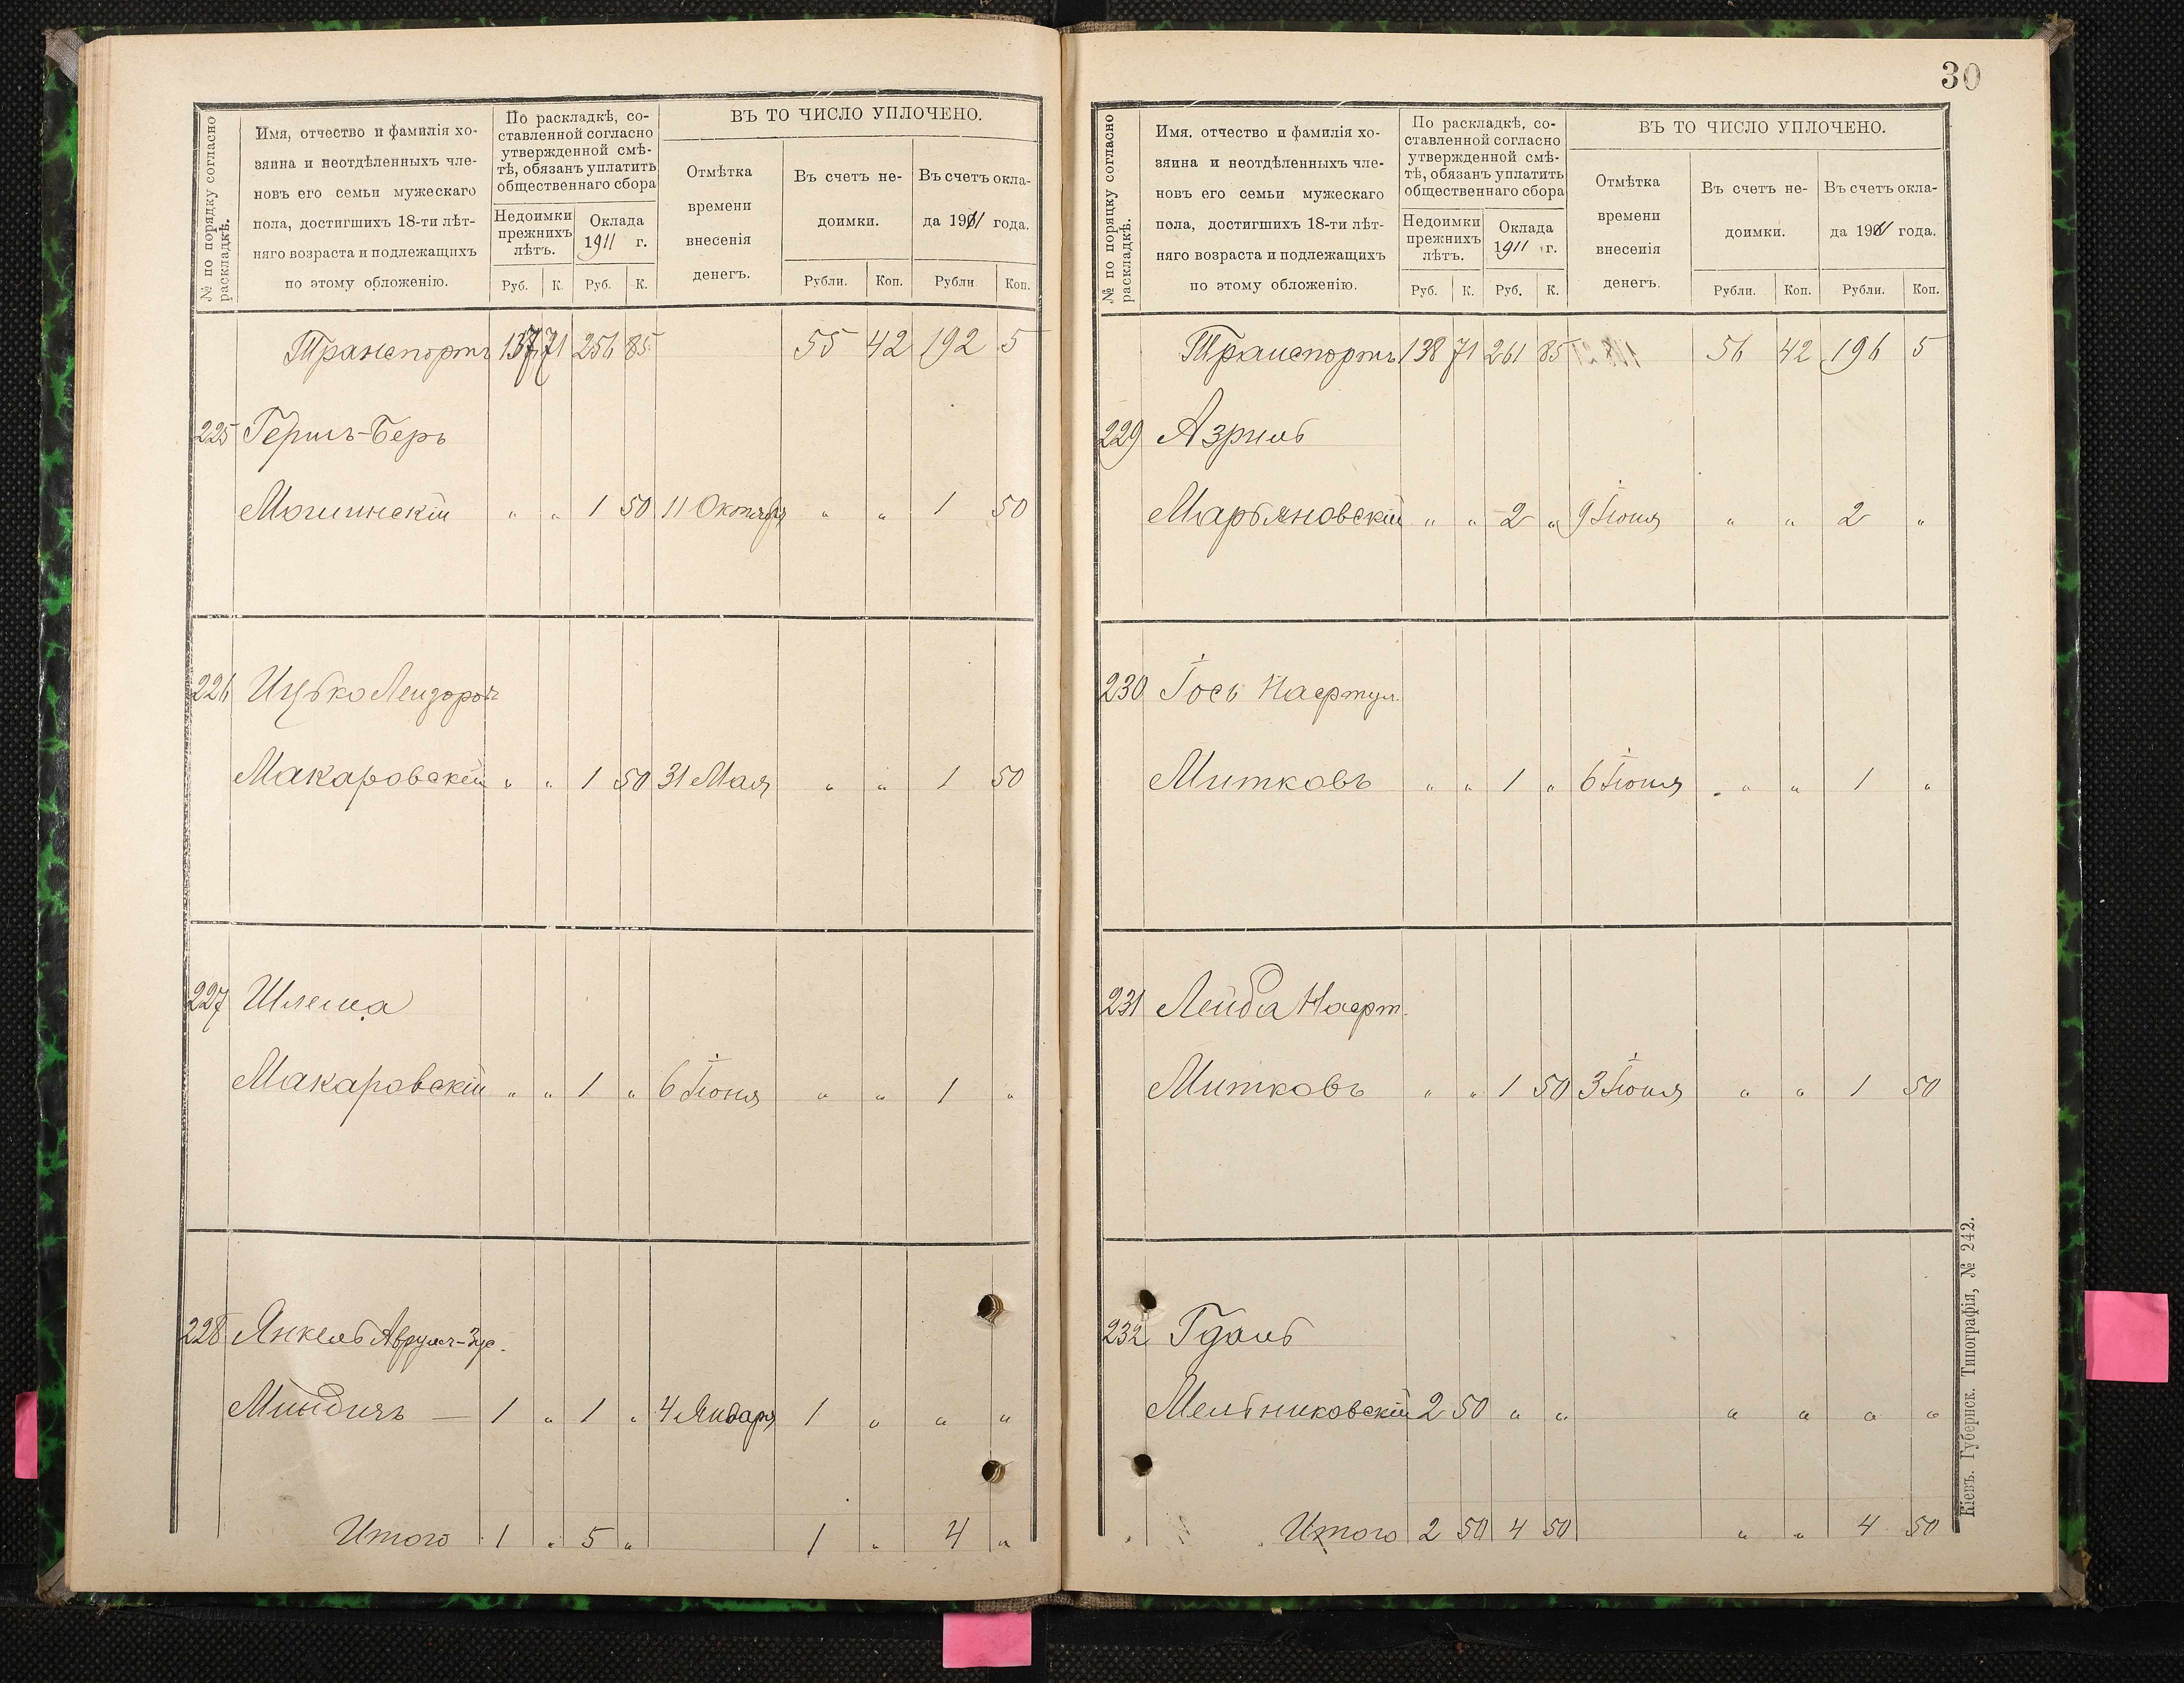 № по порядку согласно раскладкѣ.
Имя, отчество и фамилія хо-
зяина и неотдѣленныхъ чле-
новъ его семьи мужескаго
пола, достигшихъ 18-ти лѣт-
няго возраста и подлежащихъ
по этому обложенію.
По раскладкѣ, со-
ставленной согласно
утвержденной смѣ-
тѣ, обязанъ уплатить
общественнаго сбора
Недоимки
прежнихъ
лѣтъ.
Оклада
1911 г.
Руб. К. Руб. К.
ВЪ ТО ЧИСЛО УПЛОЧЕНО.
Отмѣтка
времени
внесенія
денегъ.
Въ счетъ не-
доимки.
Въ счетъ окла-
да 1911 года.
Рубли. Коп. Рубли Коп.
Транспортъ 137 71 256 85 55 42 192 5
225 Гершъ-Беръ
Могилинскій " " 1 50 11 Октября " " 1 50
226 Ицько
Макаровскій " " 1 50 31 Мая " " 1 50
227 Шлема
Макаровскій " " 1 " 6 Іюня " " 1 "
228 Янкель Аврумъ-Зус.
Миндичъ — 1 " 1 " 4 Января 1 " " "
Итого 1 " 5 " 1 " 4 "
30
№ по порядку согласно раскладкѣ.
Имя, отчество и фамилія хо-
зяина и неотдѣленныхъ чле-
новъ его семьи мужескаго
пола, достигшихъ 18-ти лѣт-
няго возраста и подлежащихъ
по этому обложенію.
По раскладкѣ, со-
ставленной согласно
утвержденной смѣ-
тѣ, обязанъ уплатить
общественнаго сбора
Недоимки
прежнихъ
лѣтъ.
Оклада
1911 г.
Руб. К. Руб. К.
ВЪ ТО ЧИСЛО УПЛОЧЕНО.
Отмѣтка
времени
внесенія
денегъ.
Въ счетъ не-
доимки.
Въ счетъ окла-
да 1911 года.
Рубли. Коп. Рубли. Коп.
Транспортъ 138 71 261 85 56 42 196 5
229 Азриль
Марьяновскій " " 2 " 9 Іюня " " 2 "
230 Іось Нафтул.
Митковъ " " 1 " 6 Іюня " " 1 "
231 Лейба Нафт.
Митковъ " " 1 50 3 Іюня " " 1 50
232 Гдаль
Мельниковскій 2 50 " " " " " "
Итого 2 50 4 50 " " 4 50
Кіевъ. Губернск. Типографія, № 242.